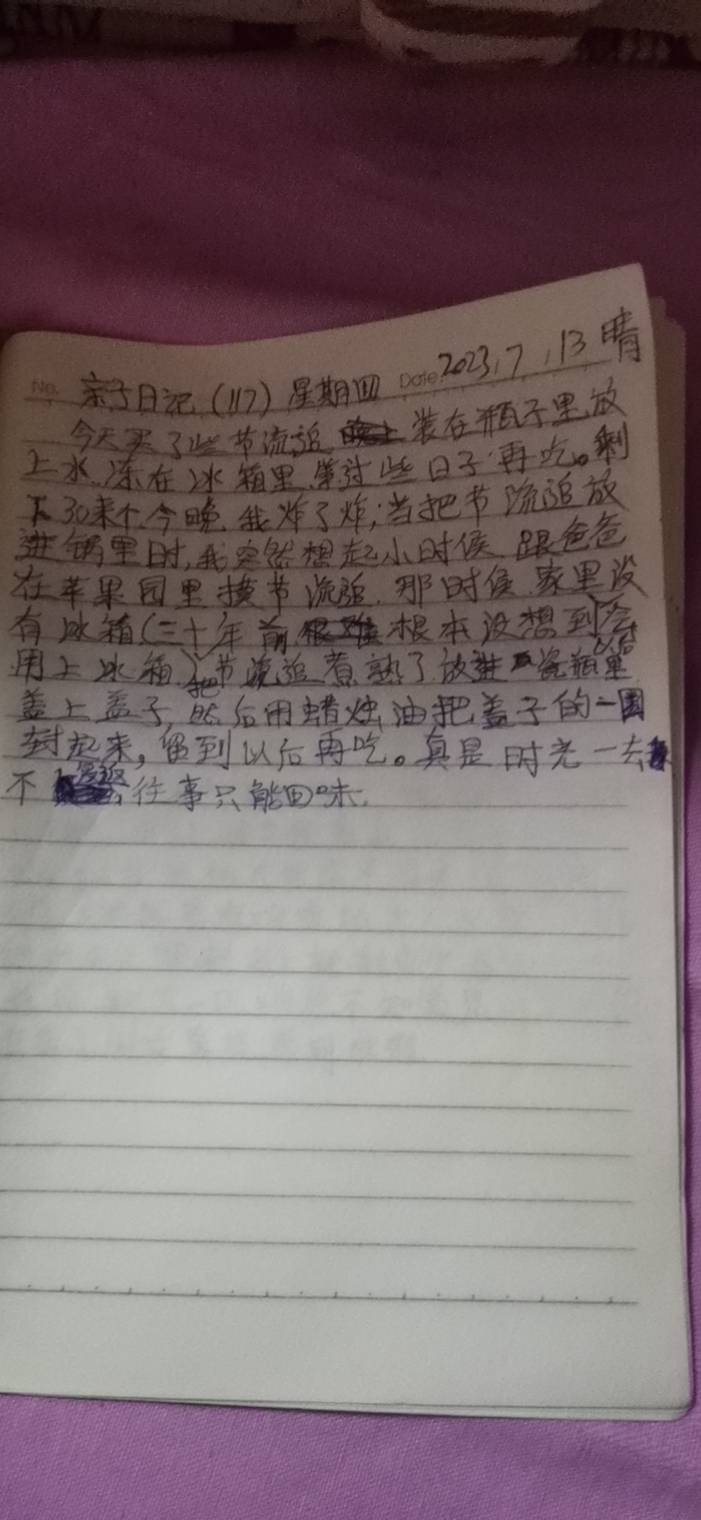 No. 亲子日记（117）星期四 Date 2023.7.13 晴
今天买了些节流追装在瓶子里,放
上水,冻在冰箱里,等过些日子再吃。剩
下30来个,今晚,我炸了炸,当把节流追放
进锅里时,我突然想起小时候 跟爸爸
在苹果园里摸节流追.那时候 家里没
有冰箱(三十年前,根本没想到会
用上冰箱)把节流追煮熟了放进瓷瓶里
盖上盖子,然后用蜡烛油把盖子的一圈
封起来,留到以后再吃。真是时光一去
不复返 往事只能回味.